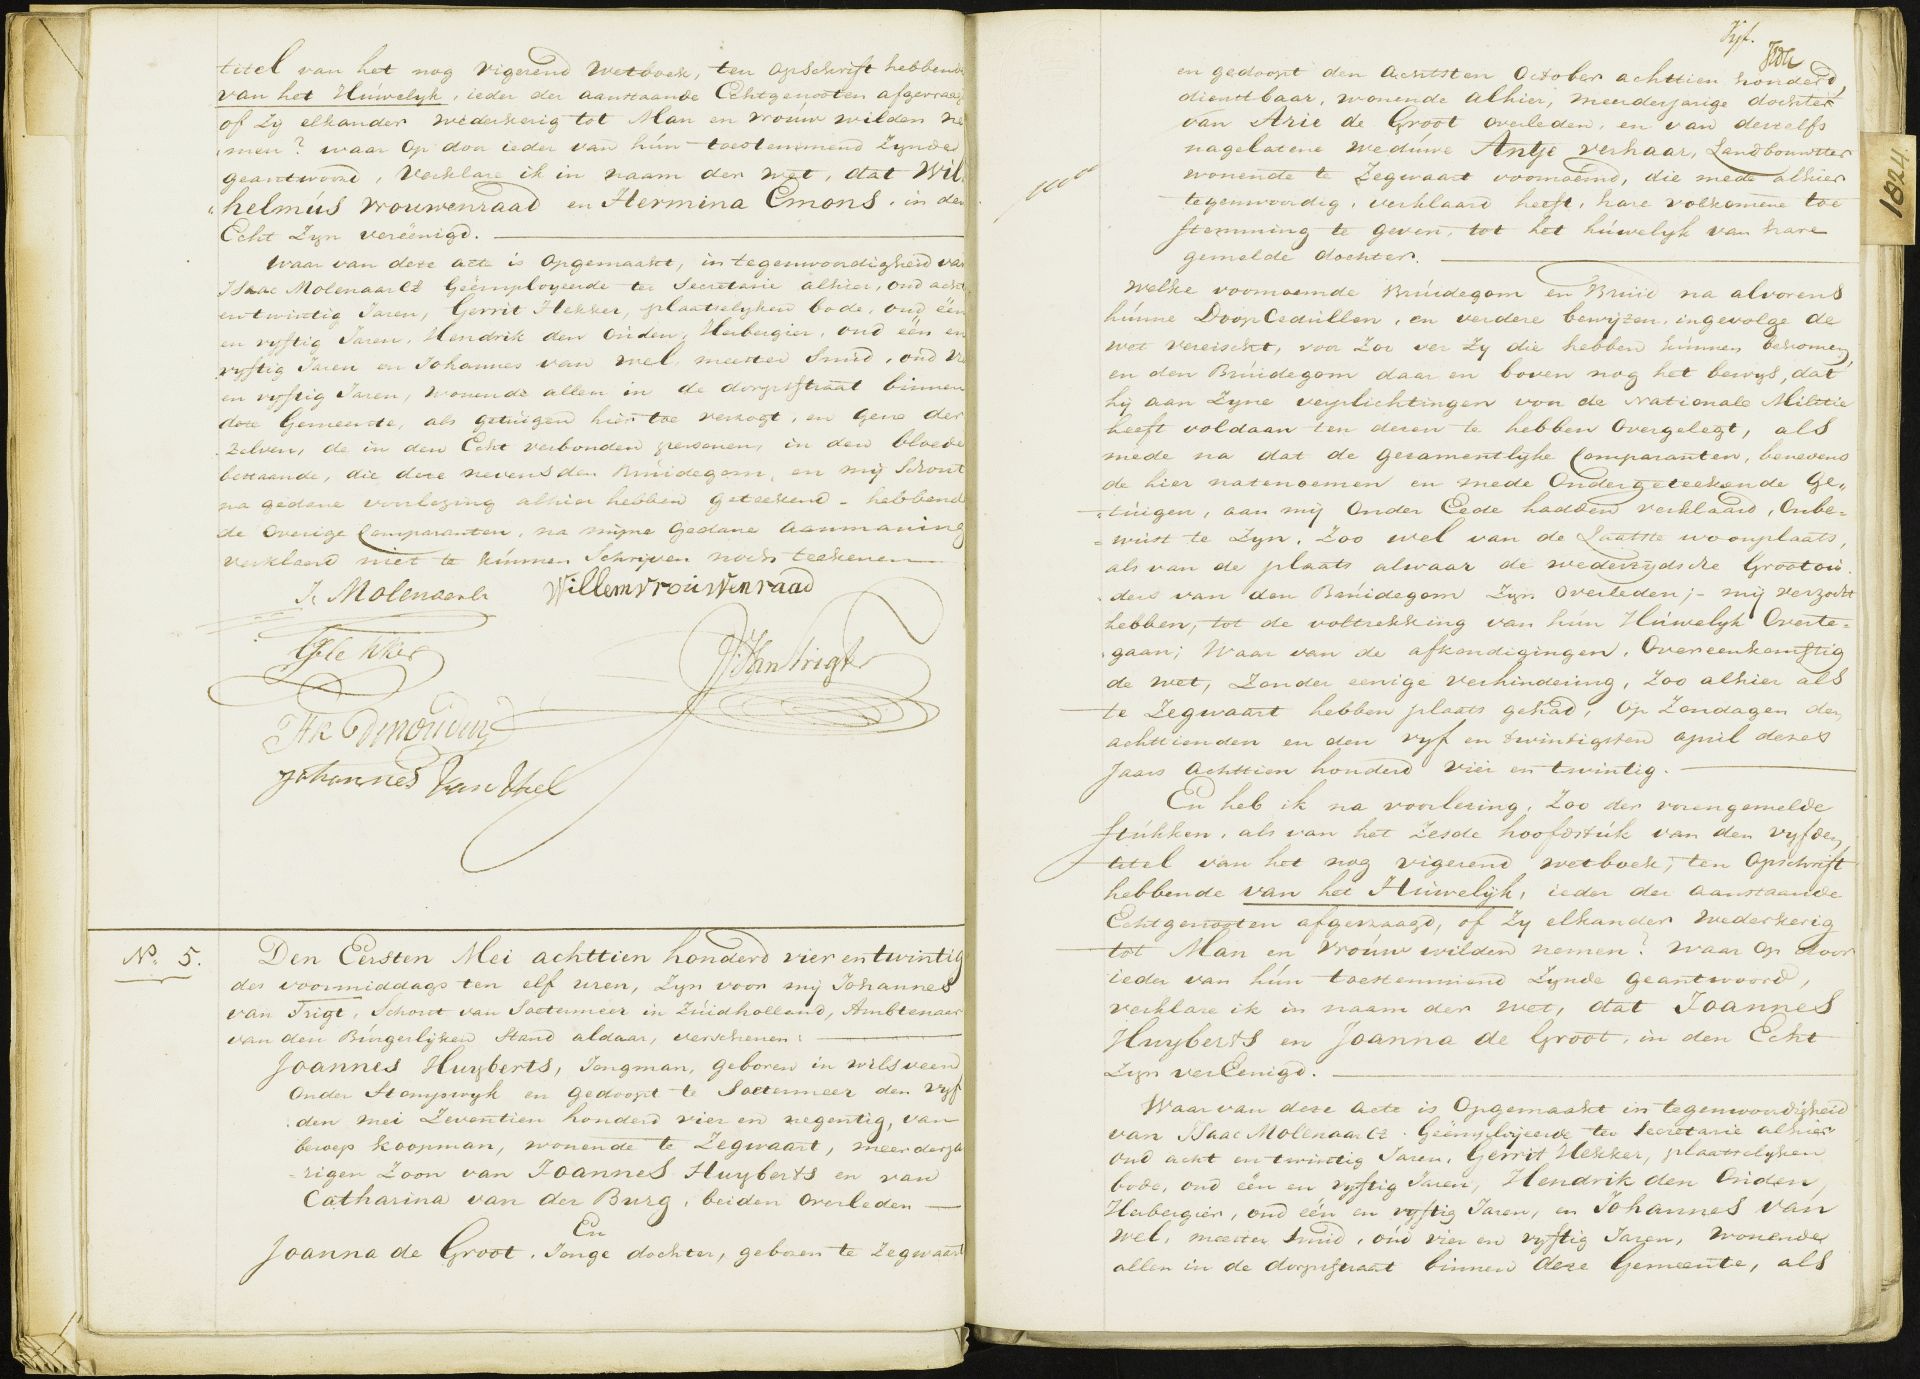 titel van het nog vigerend wetboek, ten opschrift hebbende
van het Húwelyk, ieder der aanstaande Echtgenooten afgevraagd
of Zy elkander wederkerig tot Man en vrouw wilden ne
men? waar op door ieder van hún toestemmend Zynde
geantwoord, Verklare ik in naam der wet, dat Wil
helmús vrouwenraad en Hermina Emons, in den
Echt Zyn vereënigd.
Waar van deze acte is opgemaakt, in tegenwoordigheid van
Isaac Molenaar Lz Geëmployeerde ter Secretarie alhier, oud acht
en twintig Jaren, Gerrit Hekker, plaatselyken bode, oud één
en vyftig Jaren, Hendrik den Ouden, Herbergier, oud één en
vyftig Jaren en Johannes van Wel, meester Smid, oud vier
en vyftig Jaren, wonende allen in de dorpsstraat binnen
deze Gemeente, als getuigen hier toe verzogt, en Gene der
zelven, de in den Echt verbonden personen, in den bloede
bestaande, die deze nevens den Bruidegom, en mij Schout
na gedane voorlezing alhier hebben geteekend - hebbende
de overige Comparanten, na mijne gedane aanmaning
verklaard niet te kúnnen Schrijven noch teekenen
Is Molenaar Lz Willem vrouwenraad
G Hekker
JVan Trigt
Hk Den Ouden
Johannes Van Wel
No. 5.
Den Eersten Mei achttien honderd vier en twintig
des voormiddags ten elf uren, Zyn voor mij Johannes
van Trigt, Schout van Soetermeer in Zúidholland, Ambtenaar
van den Búrgerlijken Stand aldaar, verschenen:
Joannes Huyberts, Jongman, geboren in wilsveen
Onder Stompwyk en gedoopt te Soetermeer den vyf
den mei Zeventien honderd vier en negentig, van
beroep koopman, wonende te Zegwaart, meerderja
rigen Zoon van Joannes Huyberts en van
Catharina van der Burg, beiden overleden
En
Joanna de Groot, Jonge dochter, geboren te Zegwaart
Vyf.
en gedoopt den achtsten October achttien honderd,
dienstbaar, wonende alhier, meerderjarige dochter
van Arie de Groot overleden, en van deszelfs
nagelatene wedúwe Antje Verhaar, Landbouwster
wonende te Zegwaart voornoemd, die mede alhier
tegenwoordig, verklaard heeft, hare volkomene toe
stemming te geven, tot het húwelyk van hare
gemelde dochter.
Welke voornoemde Brúidegom en Brúid na alvorens
húnne Doop Cedúllen, en verdere bewijzen, ingevolge de
wet vereischt, voor Zoo ver Zy die hebben kúnnen bekomen,
en den Brúidegom daar en boven nog het bewys, dat
hij aan Zyne verplichtingen voor de Nationale Militie
heeft voldaan ten dezen te hebben overgelegt, als
mede na dat de gezamentlyke Comparanten, benevens
de hier natenoemen en mede Ondergeteekende Ge„
túigen, aan mij Onder Eede hadden verklaard, Onbe=
wust te Zyn, Zoo wel van de Laatste woonplaats,
als van de plaats alwaar de wederzydsche Grootou
ders van den Brúidegom Zyn overleden; - mij verzocht
hebben, tot de voltrekking van hún Húwelyk Overte=
gaan; Waar van de afkondigingen, Overeenkomstig
de wet, Zonder eenige verhindering, Zoo alhier als
te Zegwaart hebben plaats gehad, op Zondagen den
achttienden en den vyf en twintigsten april dezes
Jaars achttien honderd vier en twintig.
En heb ik na voorlezing, Zoo der vorengemelde
Stúkken, als van het zesde hoofdstúk van den vyfden
titel van het nog vigerend wetboek, ten opschrift
hebbende van het Húwelijk, ieder der aanstaande
Echtgenooten afgevraagd, of Zy elkander Wederkerig
tot Man en Vroúw wilden nemen? waar op door
ieder van hún toestemmend Zynde geantwoord,
verklare ik in naam der wet, dat Joannes
Huyberts en Joanna de Groot, in den Echt
Zyn verEenigd.
Waar van deze acte is Opgemaakt in tegenwoordigheid
van Isaac Molenaar Lz. Geëmployeerde ter Secretarie alhier
oud acht en twintig Jaren, Gerrit Hekker, plaatselyken
bode, oud één en vyftig Jaren, Hendrik den Ouden,
Herbergier, oud één en vyftig Jaren, en Johannes van
Wel, meester Smid, oúd vier en vyftig Jaren, wonende
allen in de dorpsstraat binnen deze Gemeente, als
1824